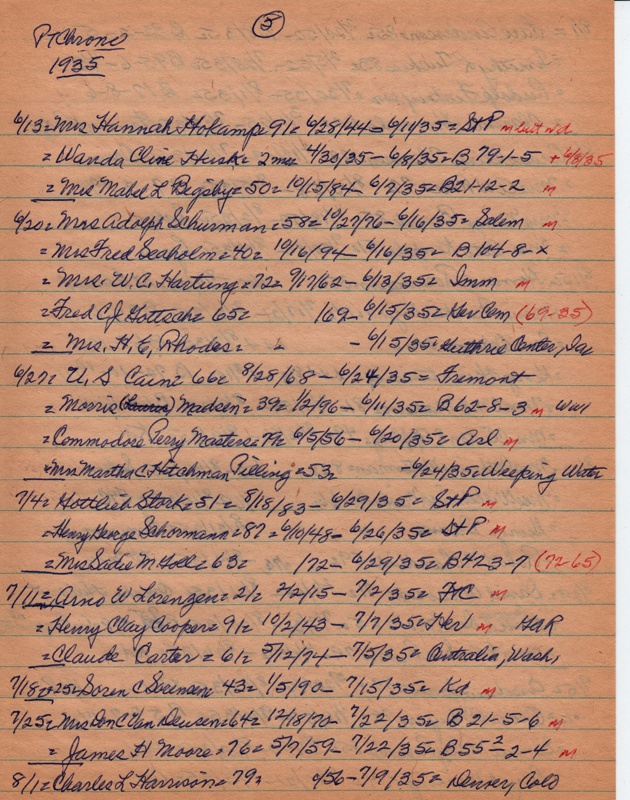 5
Pt Chrono
1935
6/13= Mrs Hannah Hokamp= 91= 6/28/44- 6/11/35= St P m but nd
= Wanda Cline Heisk= 2 mos 4/30/35- 6/8/35= B 79-1-5 + 6/8/35
= Mrs Mabel L Bigsby= 50= 10/15/84- 6/7/35= B21-12-2 m
6/20= Mrs Adolph Schurman= 58= 10/27/76- 6/16/35= Salem m
= Mrs Fred Seaholm= 40= 10/16/94- 6/16/35= B 104-8-x
= Mrs. W.C. Hartung= 72= 9/17/62- 6/13/35= Imm m
= Fred C.J. Gottsch= 65= 169- 6/15/35= Ker Cem (69-35)
= Mrs. H. E. Rhodes= - 6/15/35= Guthrie Center, Ia
6/27= U. S Cain= 66= 8/28/68- 6/24/35= Fremont
= Morris (Lauris) Madsen= 39= 1/2/96- 6/11/35= B62-8-3 m WWI
= Commodore Perry Masters= 79= 6/5/56- 6/20/35= Arl m
= Mrs Martha C Hitchman Pilling= 53= -6/24/35= Weeping Water
7/4= Gottlieb Stork= 51= 8/18/83- 6/29/35= St P m
= Henry George Schormann= 87= 6/10/48- 6/26/35= St P m
= Mrs Sadie M Noll= 63= 172- 6/29/35= B42-3-7 (72-65)
7/11= Arno W Lorenzen= 21= 2/2/15- 7/2/35= FC m
= Henry Clay Cooper= 91= 10/2/43- 7/7/35= Her m GAR
= Claude Carter= 61= 5/12/74- 7/5/35= Centralia, Wash,
7/18 25= Soren C Sorensen= 43= 1/5/90- 7/15/35= Kd m
7/25= Mrs Don C Van Deusen= 64= 12/18/70- 7/22/35= B 21-5-6 m
= James H Moore= 76= 5/7/59- 7/22/35= B55²-2-4 m
8/1= Charles L Harrison= 79= 0/56- 7/9/35= Denver, Colo